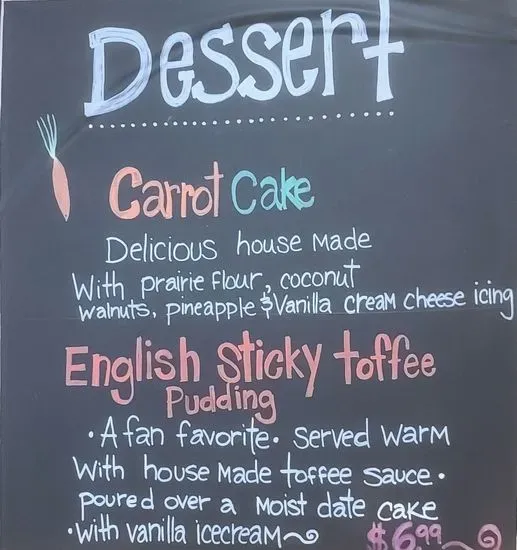 Dessert
Carrot Cake
Delicious house made
With prairie flour, coconut
walnuts, pineapple & Vanilla cream cheese icing
English Sticky toffee
Pudding
• A fan favorite • served warm
With house made toffee sauce •
poured over a moist date cake
• With vanilla icecream~
$6.99